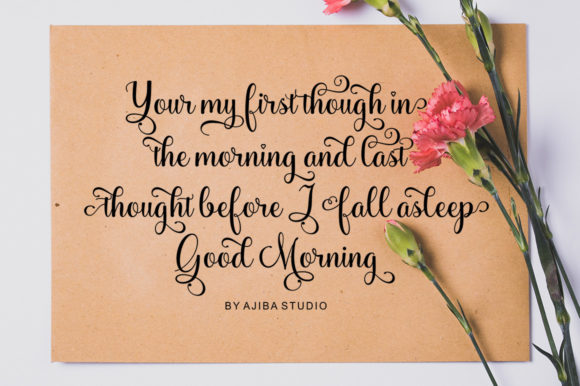 Your my first though in
the morning and last
thought before I fall asleep
Good Morning
BY AJIBA STUDIO